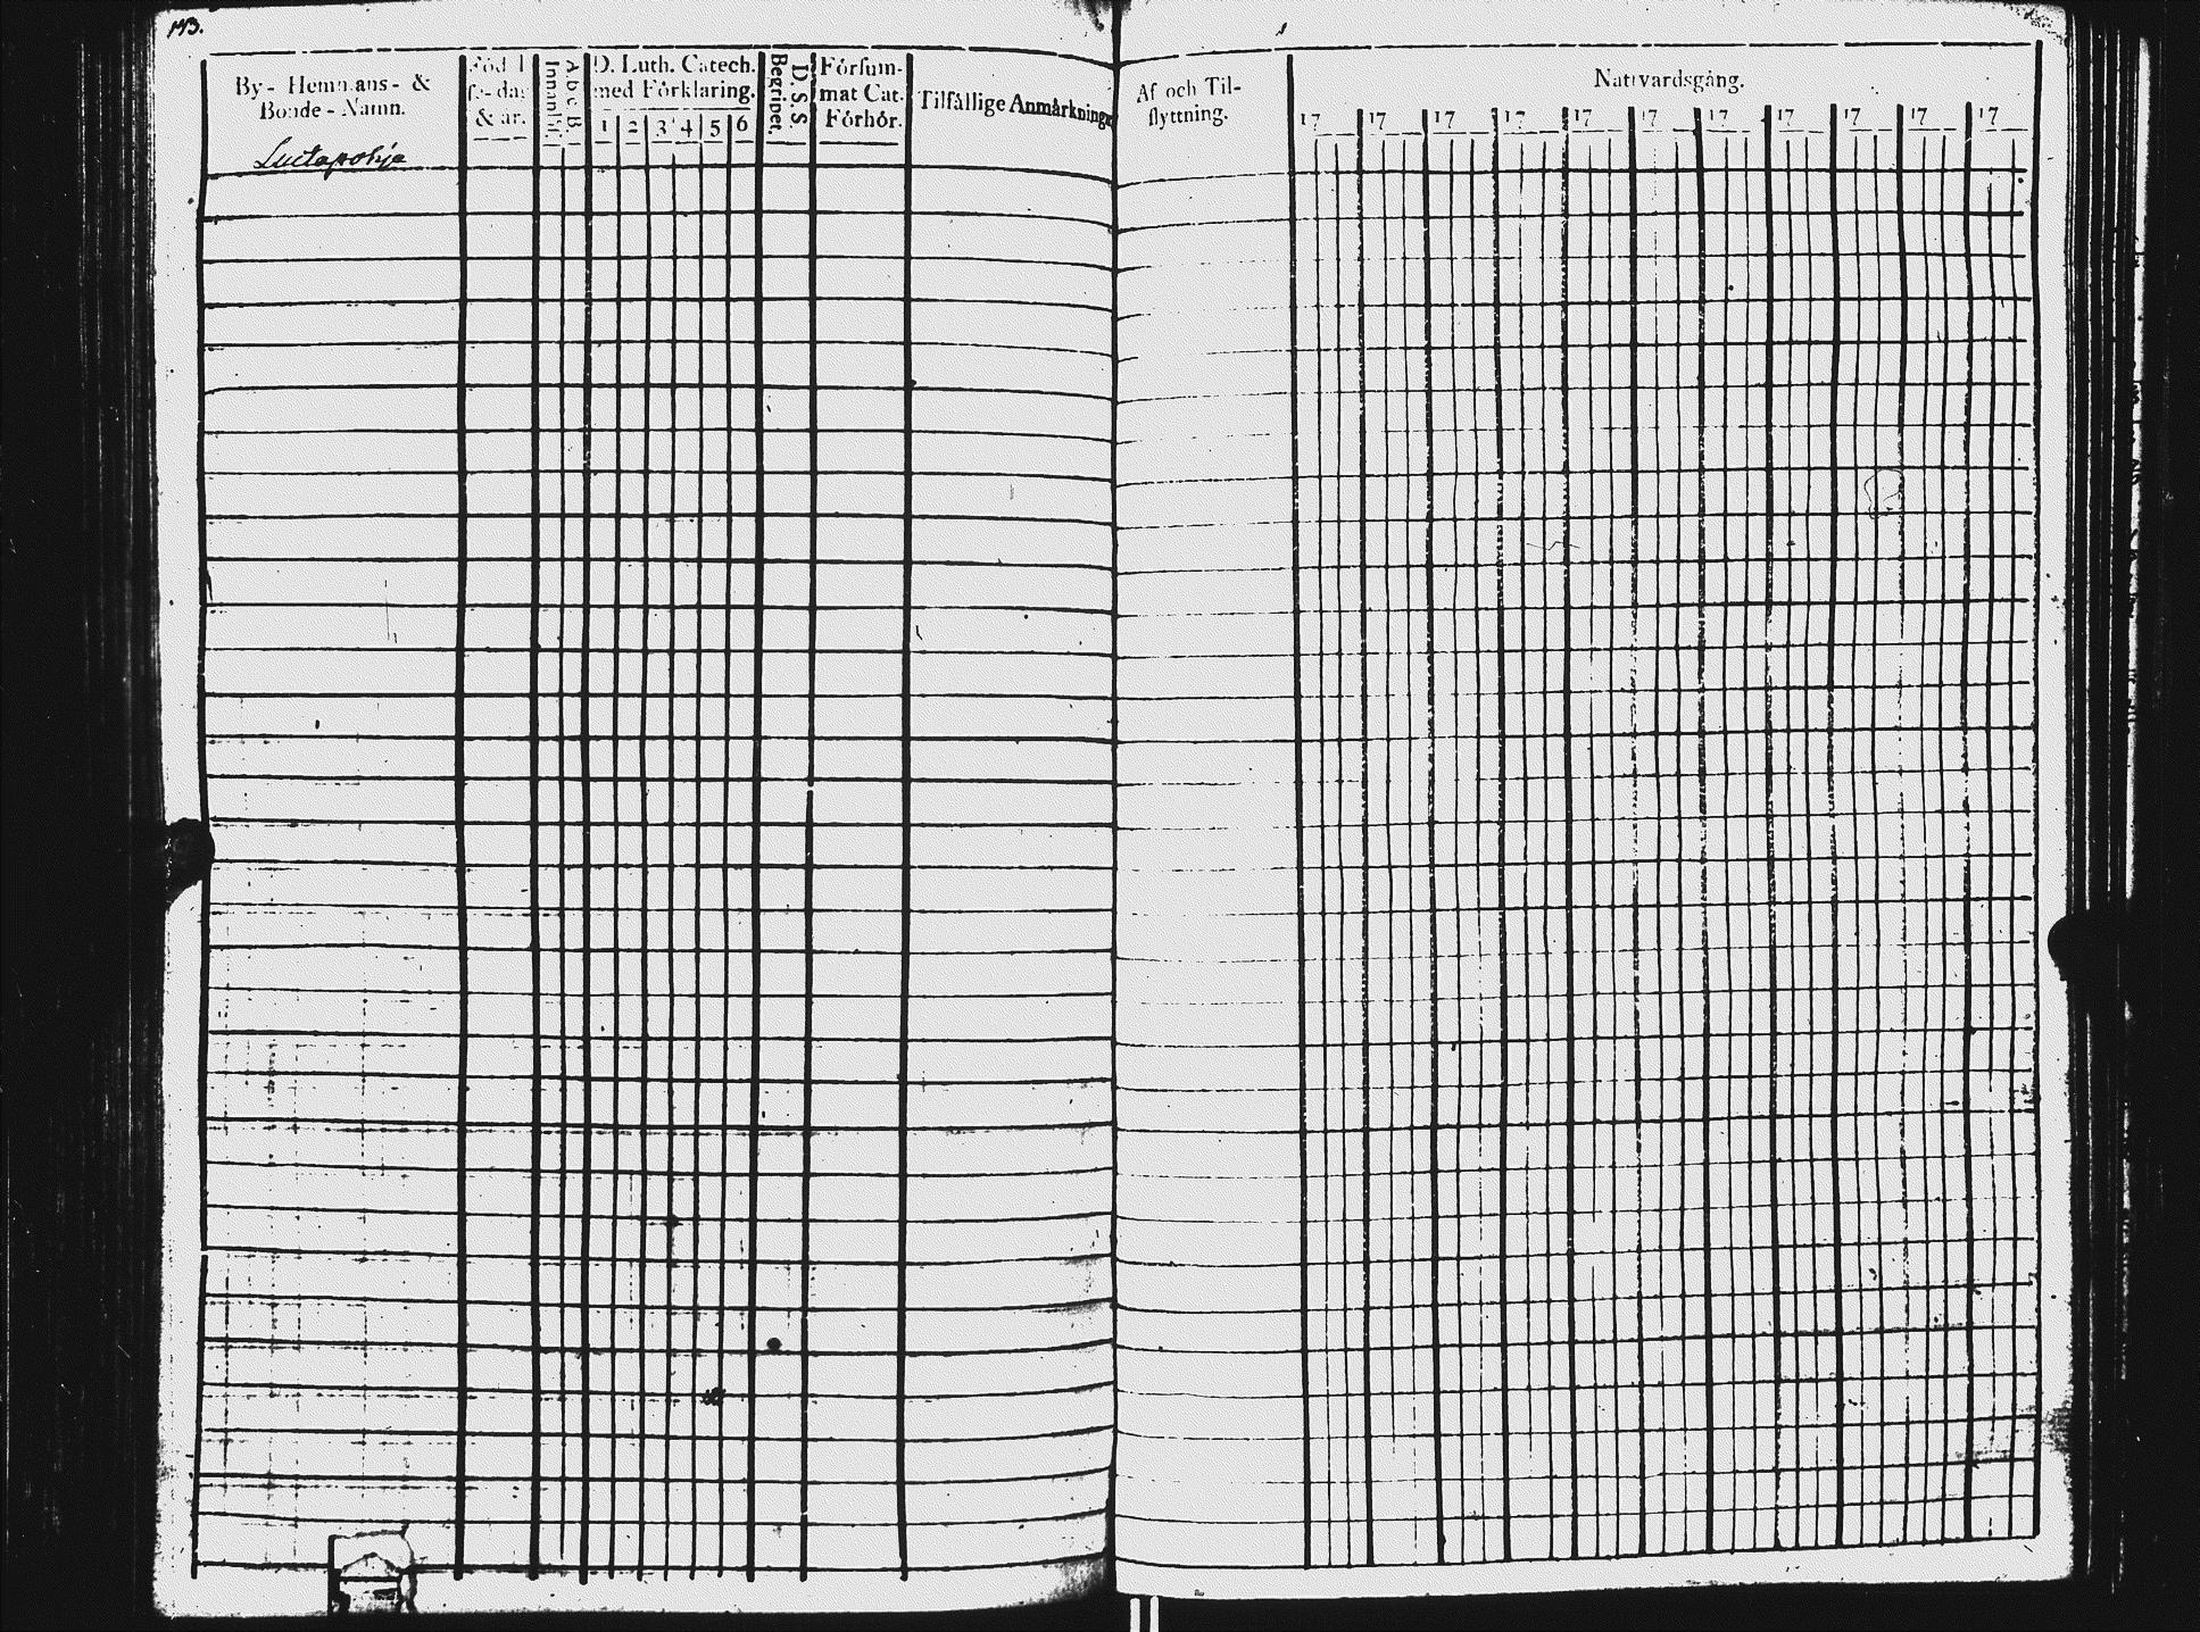 143.
By- Hemmans- &
Bonde-Namn.
Luctapohja
Föd
se-dag
& år.
A.b.c.B.
Innanläs.
D. Luth. Catech.
med Förklaring.
1 2 3 4 5 6
D. S. S.
Begripet.
Försum-
mat Cat.
Förhör.
Tilfällige Anmärkningar
Af och Til-
flyttning.
Nattvardsgång.
17 17 17 17 17 17 17 17 17 17 17